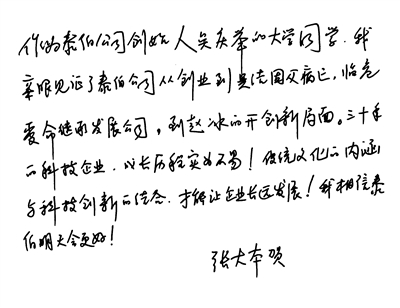 作为泰伯公司创始人吴庆荦的大学同学.我
亲眼见证了泰伯公司从创业到吴浩因父病亡,临危
受命继承发展公司。到赵冰的开创新局面。三十年
的科技企业,成长历程实为不易!传统文化的内涵
与科技创新的结合.才能让企业长远发展!我相信泰
伯明天会更好!
张大本贺